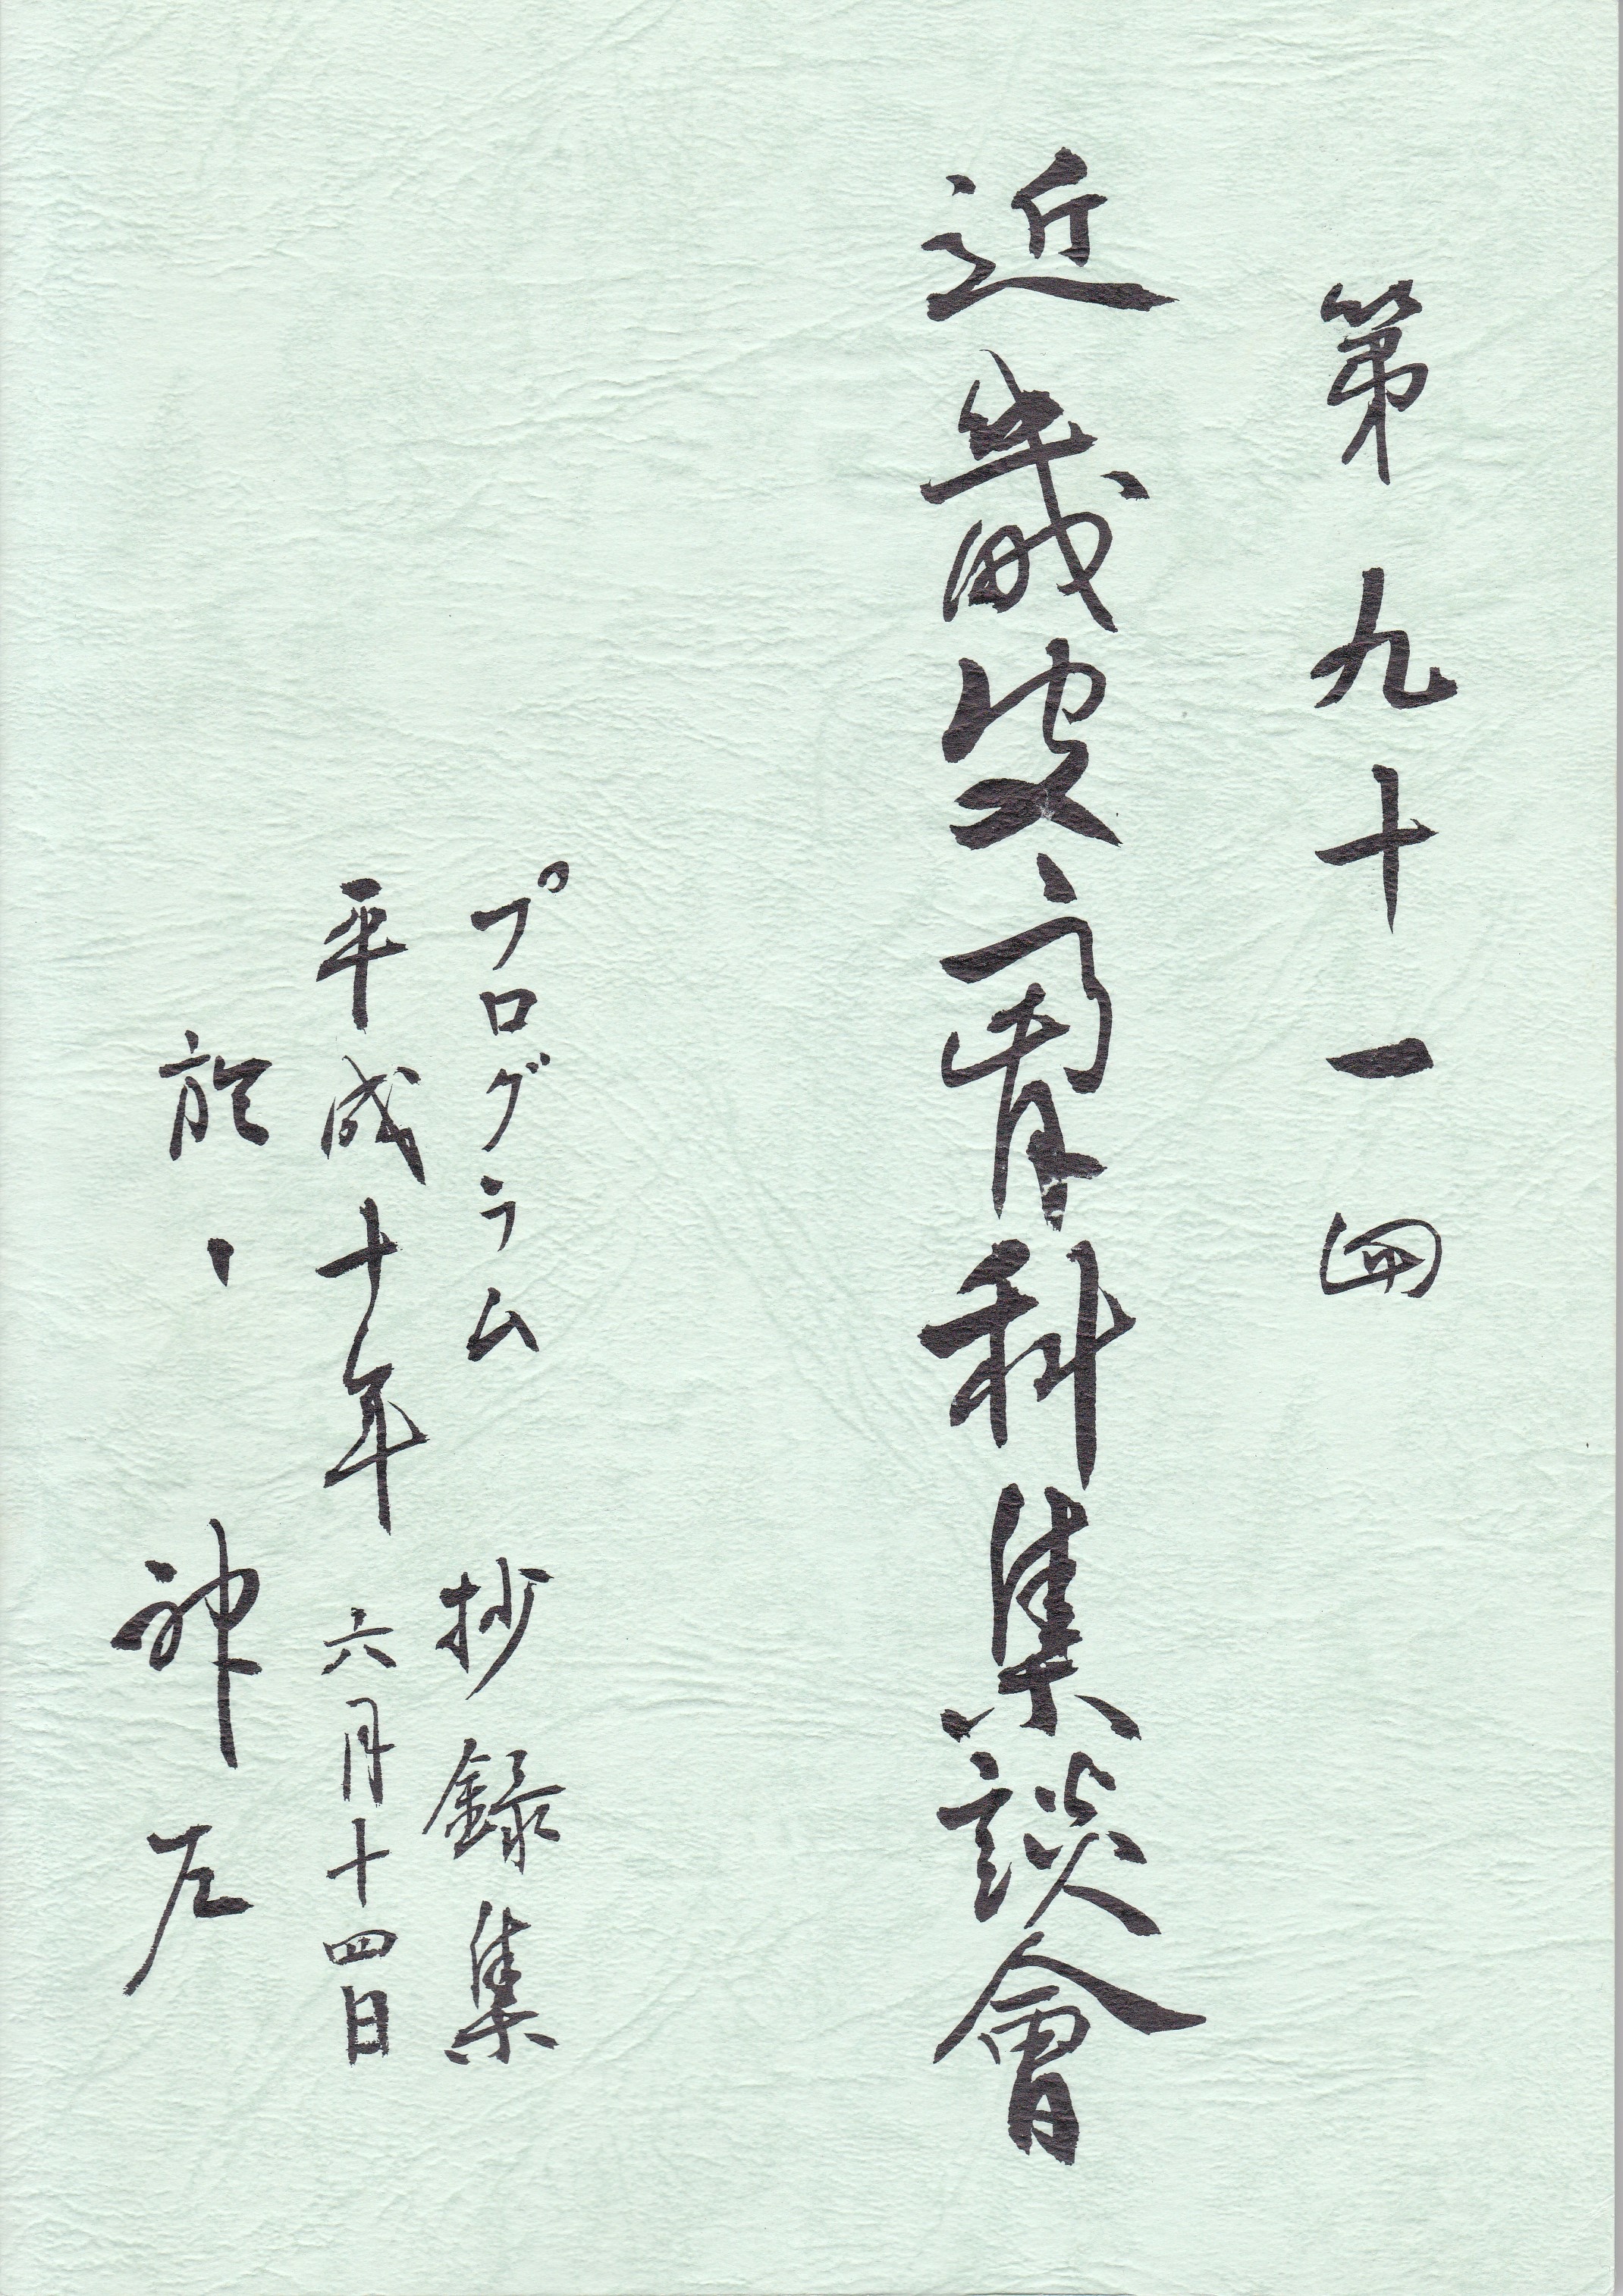 第九十一回
近畿皮膚科集談會
プログラム 抄録集
平成十年 六月十四日
於、神戸